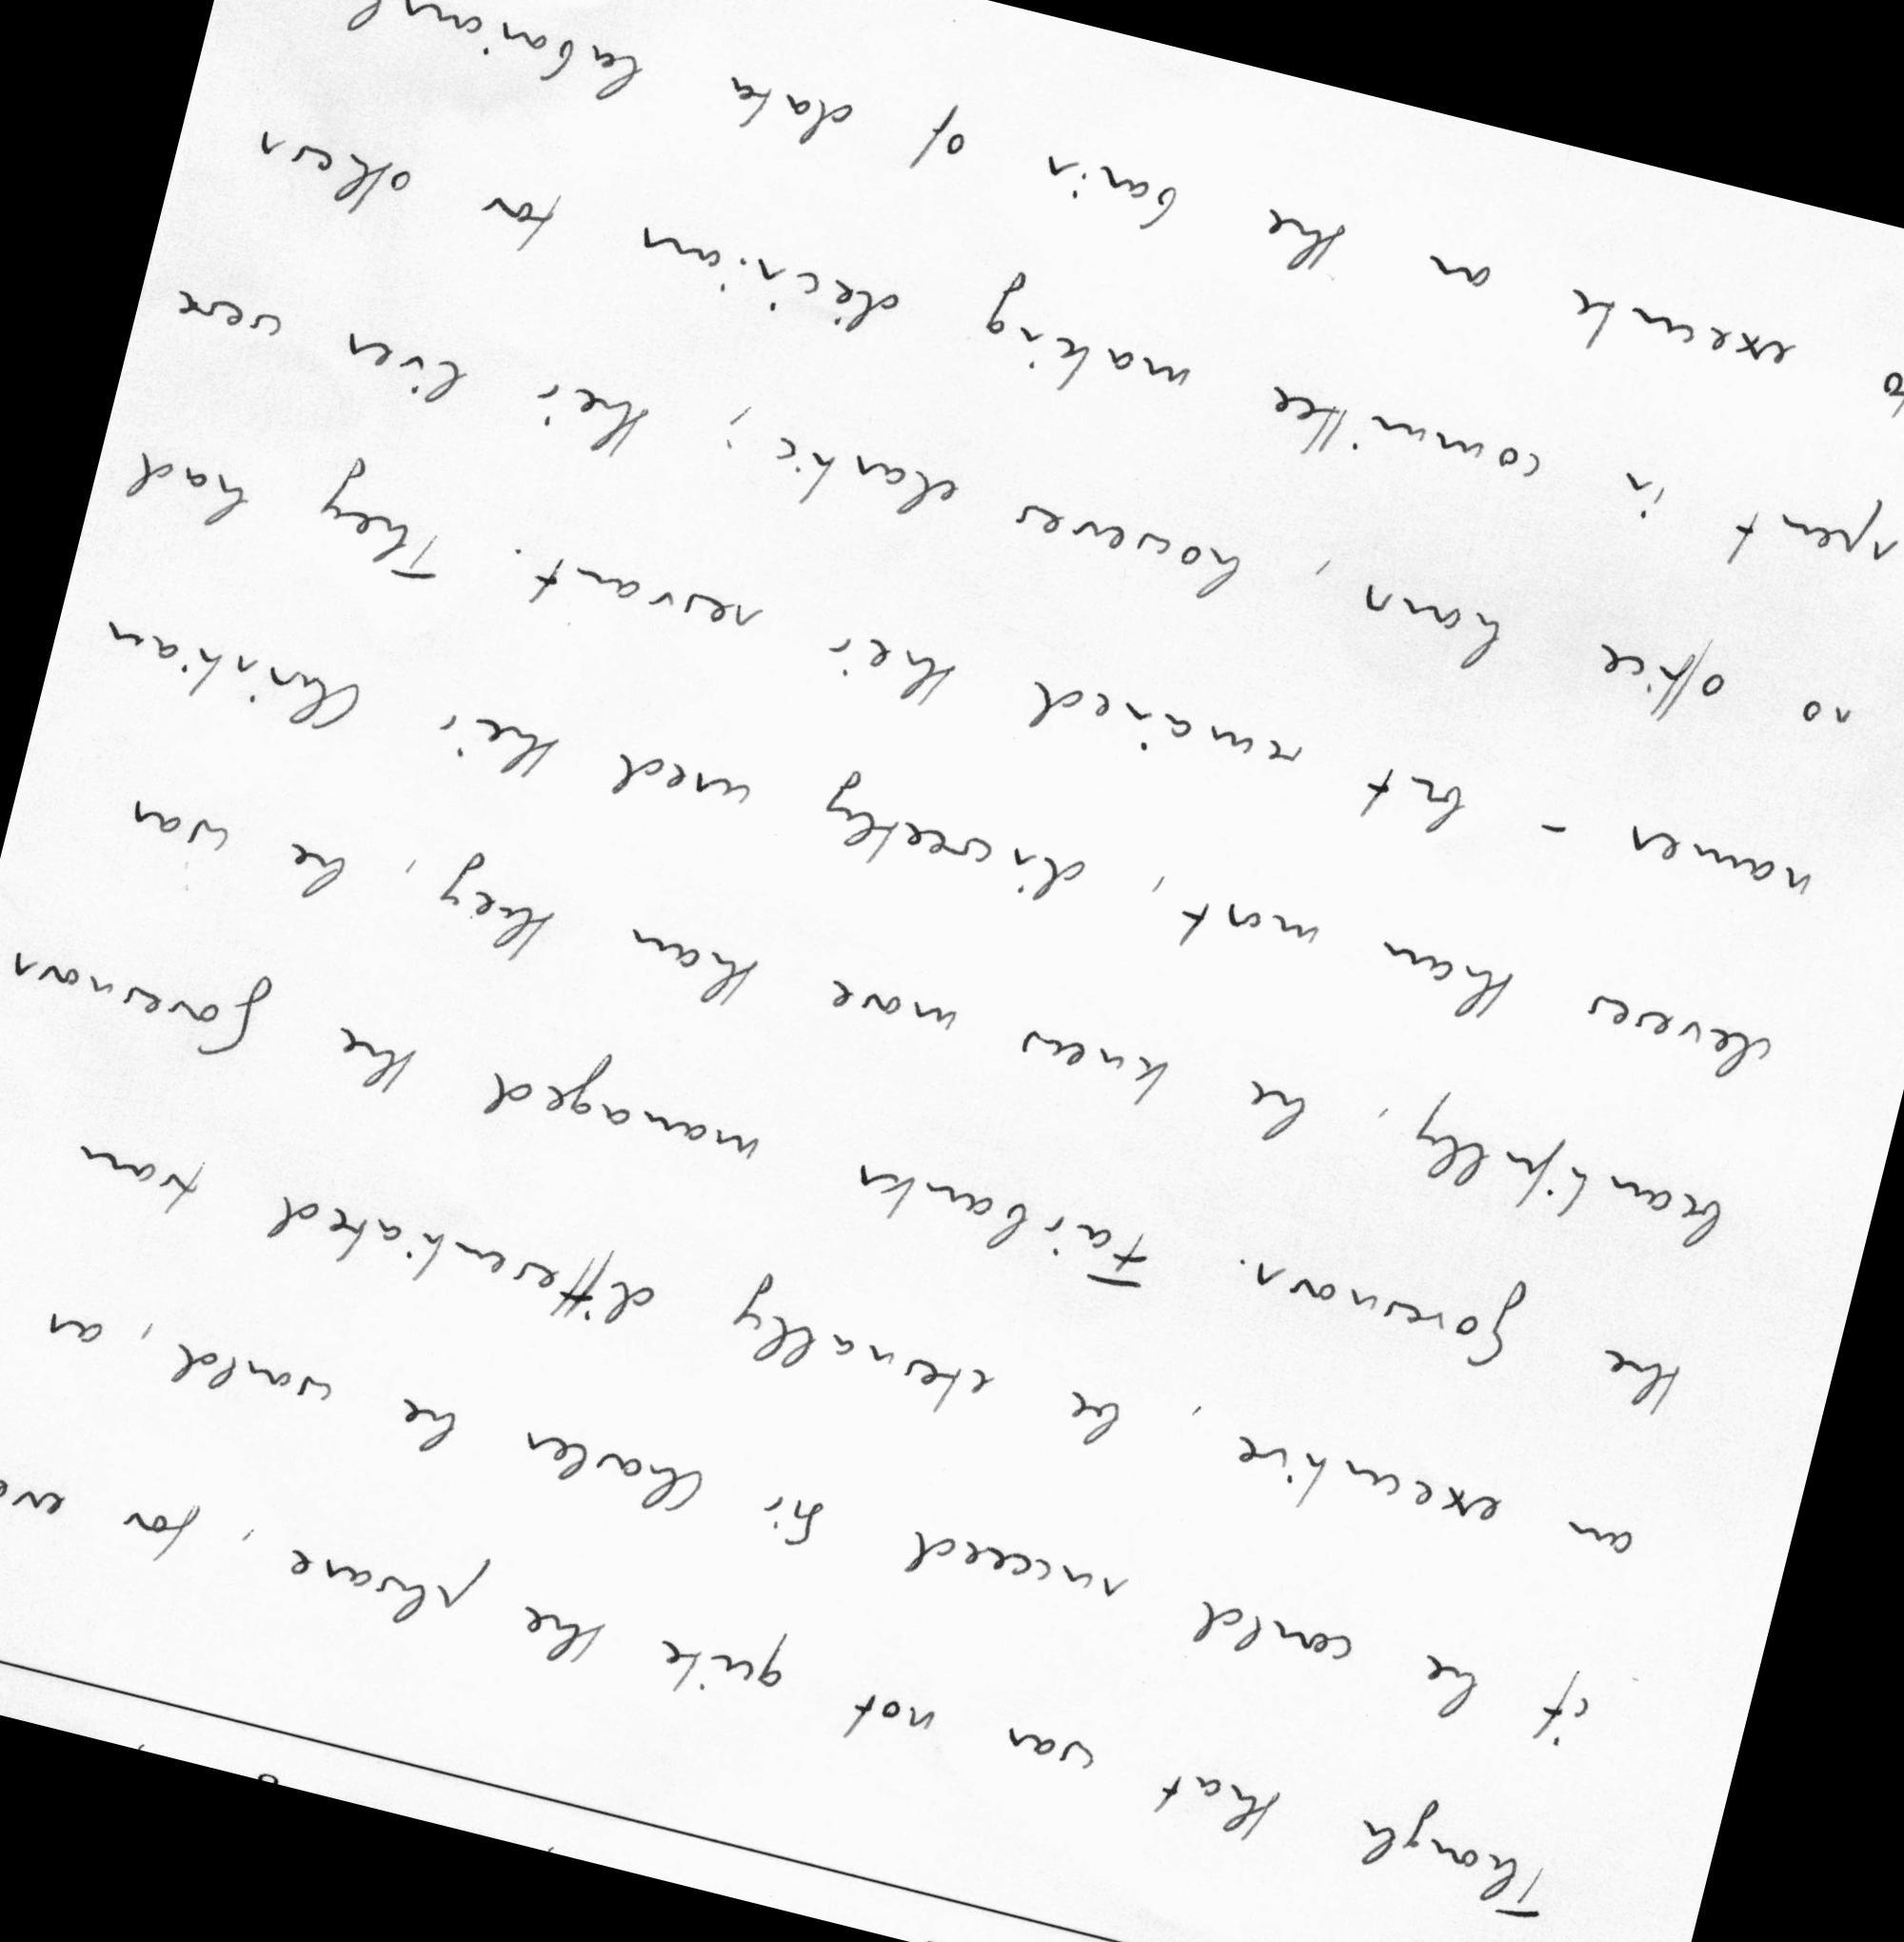 Though that was not quite the phrase, for even
if he could succeed Sir Charles he would, as
an executive, be eternally differentiated from
the Governors. Fairbanks managed the Governors
beautifully, he knew more than they, he was
cleverer than most, discreetly used their Christian
names - but remained their servant. They had
no office hours, however elastic; their lives were
spent in committee making decisions for others
to execute on the basis of data